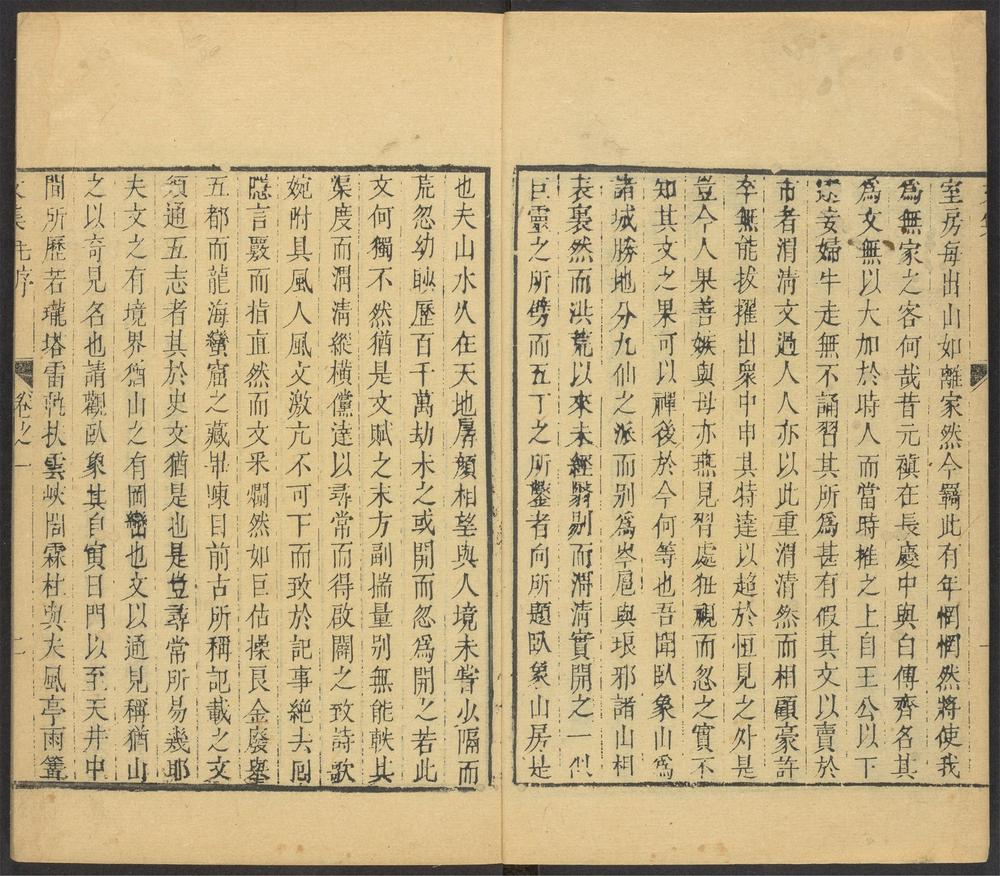 室房每出山如離家然今羈此有年惘惘然將使我
為無家之客何哉昔元禛在長慶中與白傅齊名其
為文無以大加於時人而當時推之上自王公以下
妾婦牛走無不誦習其所為甚有假其文以賣於
市者渭清文過人人亦以此重渭清然而相顧豪許
卒無能拔擢出衆中申其特達以趨於恒見之外是
豈今人果善嫉與毋亦燕見習處狃視而忽之實不
知其文之果可以禪後於今何等也吾聞臥象山為
諸城勝地分九仙之派而别為岑巵與琅邪諸山相
表裏然而洪荒以來未經翦剔而渭清實開之一似
巨靈之所傍而五丁之所鑿者向所題臥象山房是
也夫山水久在天地房顔相望與人境未嘗少隔而
荒忽幼眇歷百千萬劫未之或開而忽為開之若此
文何獨不然猶是文賦之末方副揣量别無能軼其
渠度而渭清縱橫儻達以尋常而得啟闢之致詩歌
婉附具風人風文激亢不可下而致於記事絶去
隱言覈而指直然而文采爛然如巨估操良金廢舉
五都而龍海蠻窟之藏畢陳目前古所稱記載之文
須通五志者其於史文猶是也是豈尋常所易幾耶
夫文之有境界猶山之有岡巒也文以通見稱猶山
之以奇見名也請觀臥象其自寅日門以至天井中
間所歷若瓏塔雷㡠扶雲峽閭霖杜與夫風亭雨篝
文集 毛序 卷之一 二